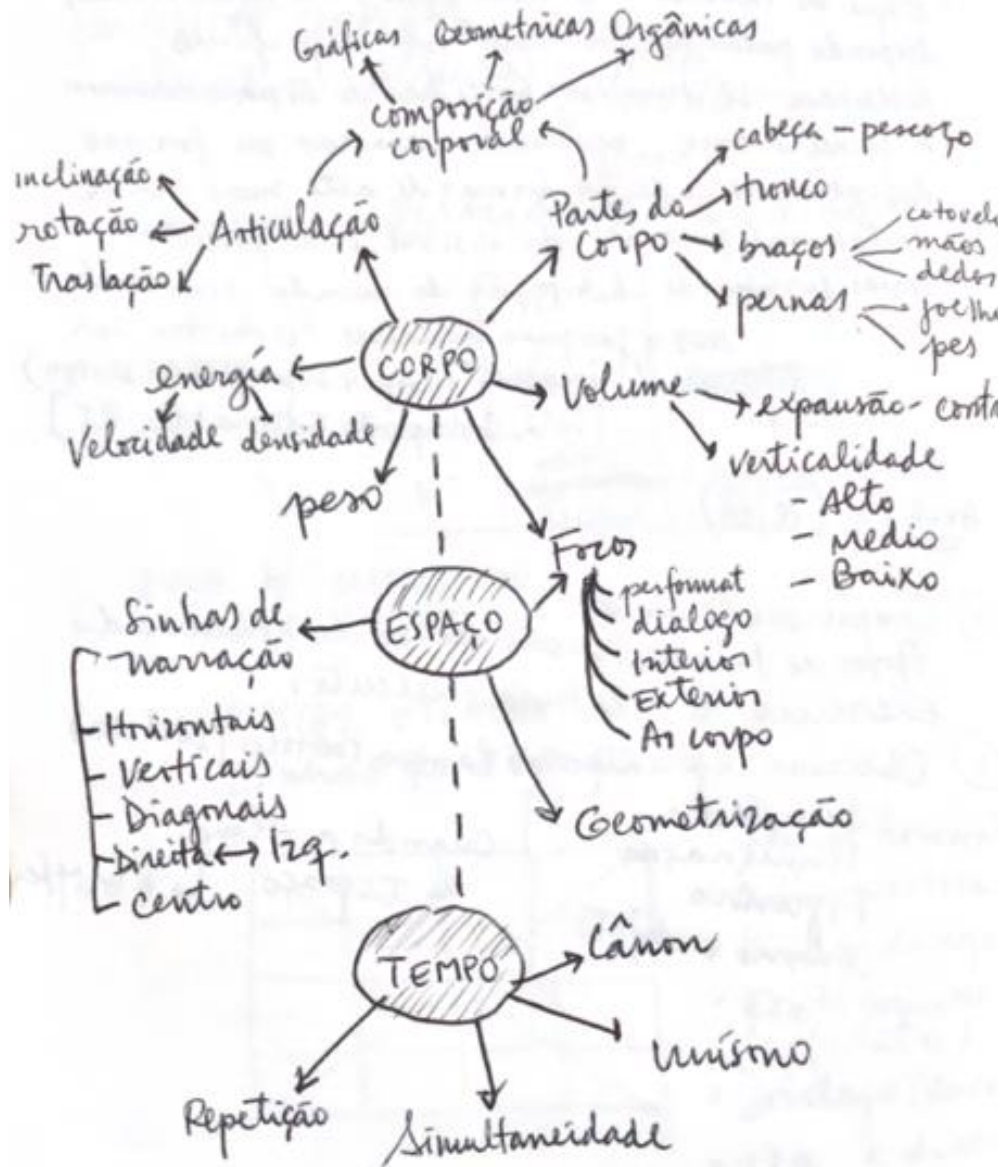 Gráficas Geometricas Orgânicas
composição
corporal
inclinação
rotação
Traslação
Articulação
Partes do
Corpo
cabeça - pescoço
tronco
braços
cotovel
mãos
dedos
pernas
joelh
pes
CORPO
energía
Velocidade densidade
peso
Volume
expansão - contr
verticalidade
- Alto
- Medio
- Baixo
Focos
performat
dialogo
Interior
Exterior
Ao corpo
ESPAÇO
Linhas de
narração
- Horizontais
- Verticais
- Diagonais
- Direita ↔ Izq.
- Centro
Geometrização
TEMPO
Cânon
Uníssono
Simultaneidade
Repetição